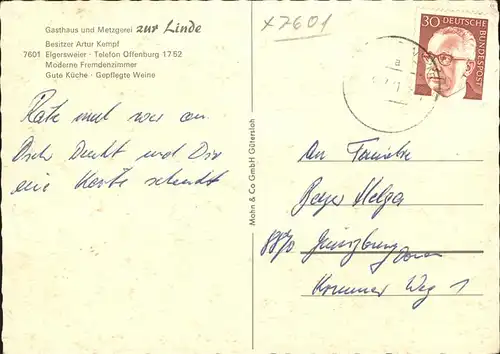 Gasthaus und Metzgerei zur Linde
Besitzer Artur Kempf
7601 Elgersweier · Telefon Offenburg 1752
Moderne Fremdenzimmer
Gute Küche · Gepflegte Weine
x7601
30 DEUTSCHE
BUNDESPOST
Rate mal wer an
Dich Denkt und Dir
eine Karte schickt
Mohn & Co GmbH Gütersloh
An Familie
Beyer Helga
8870 Günzburg
Donau
Krummer Weg 1